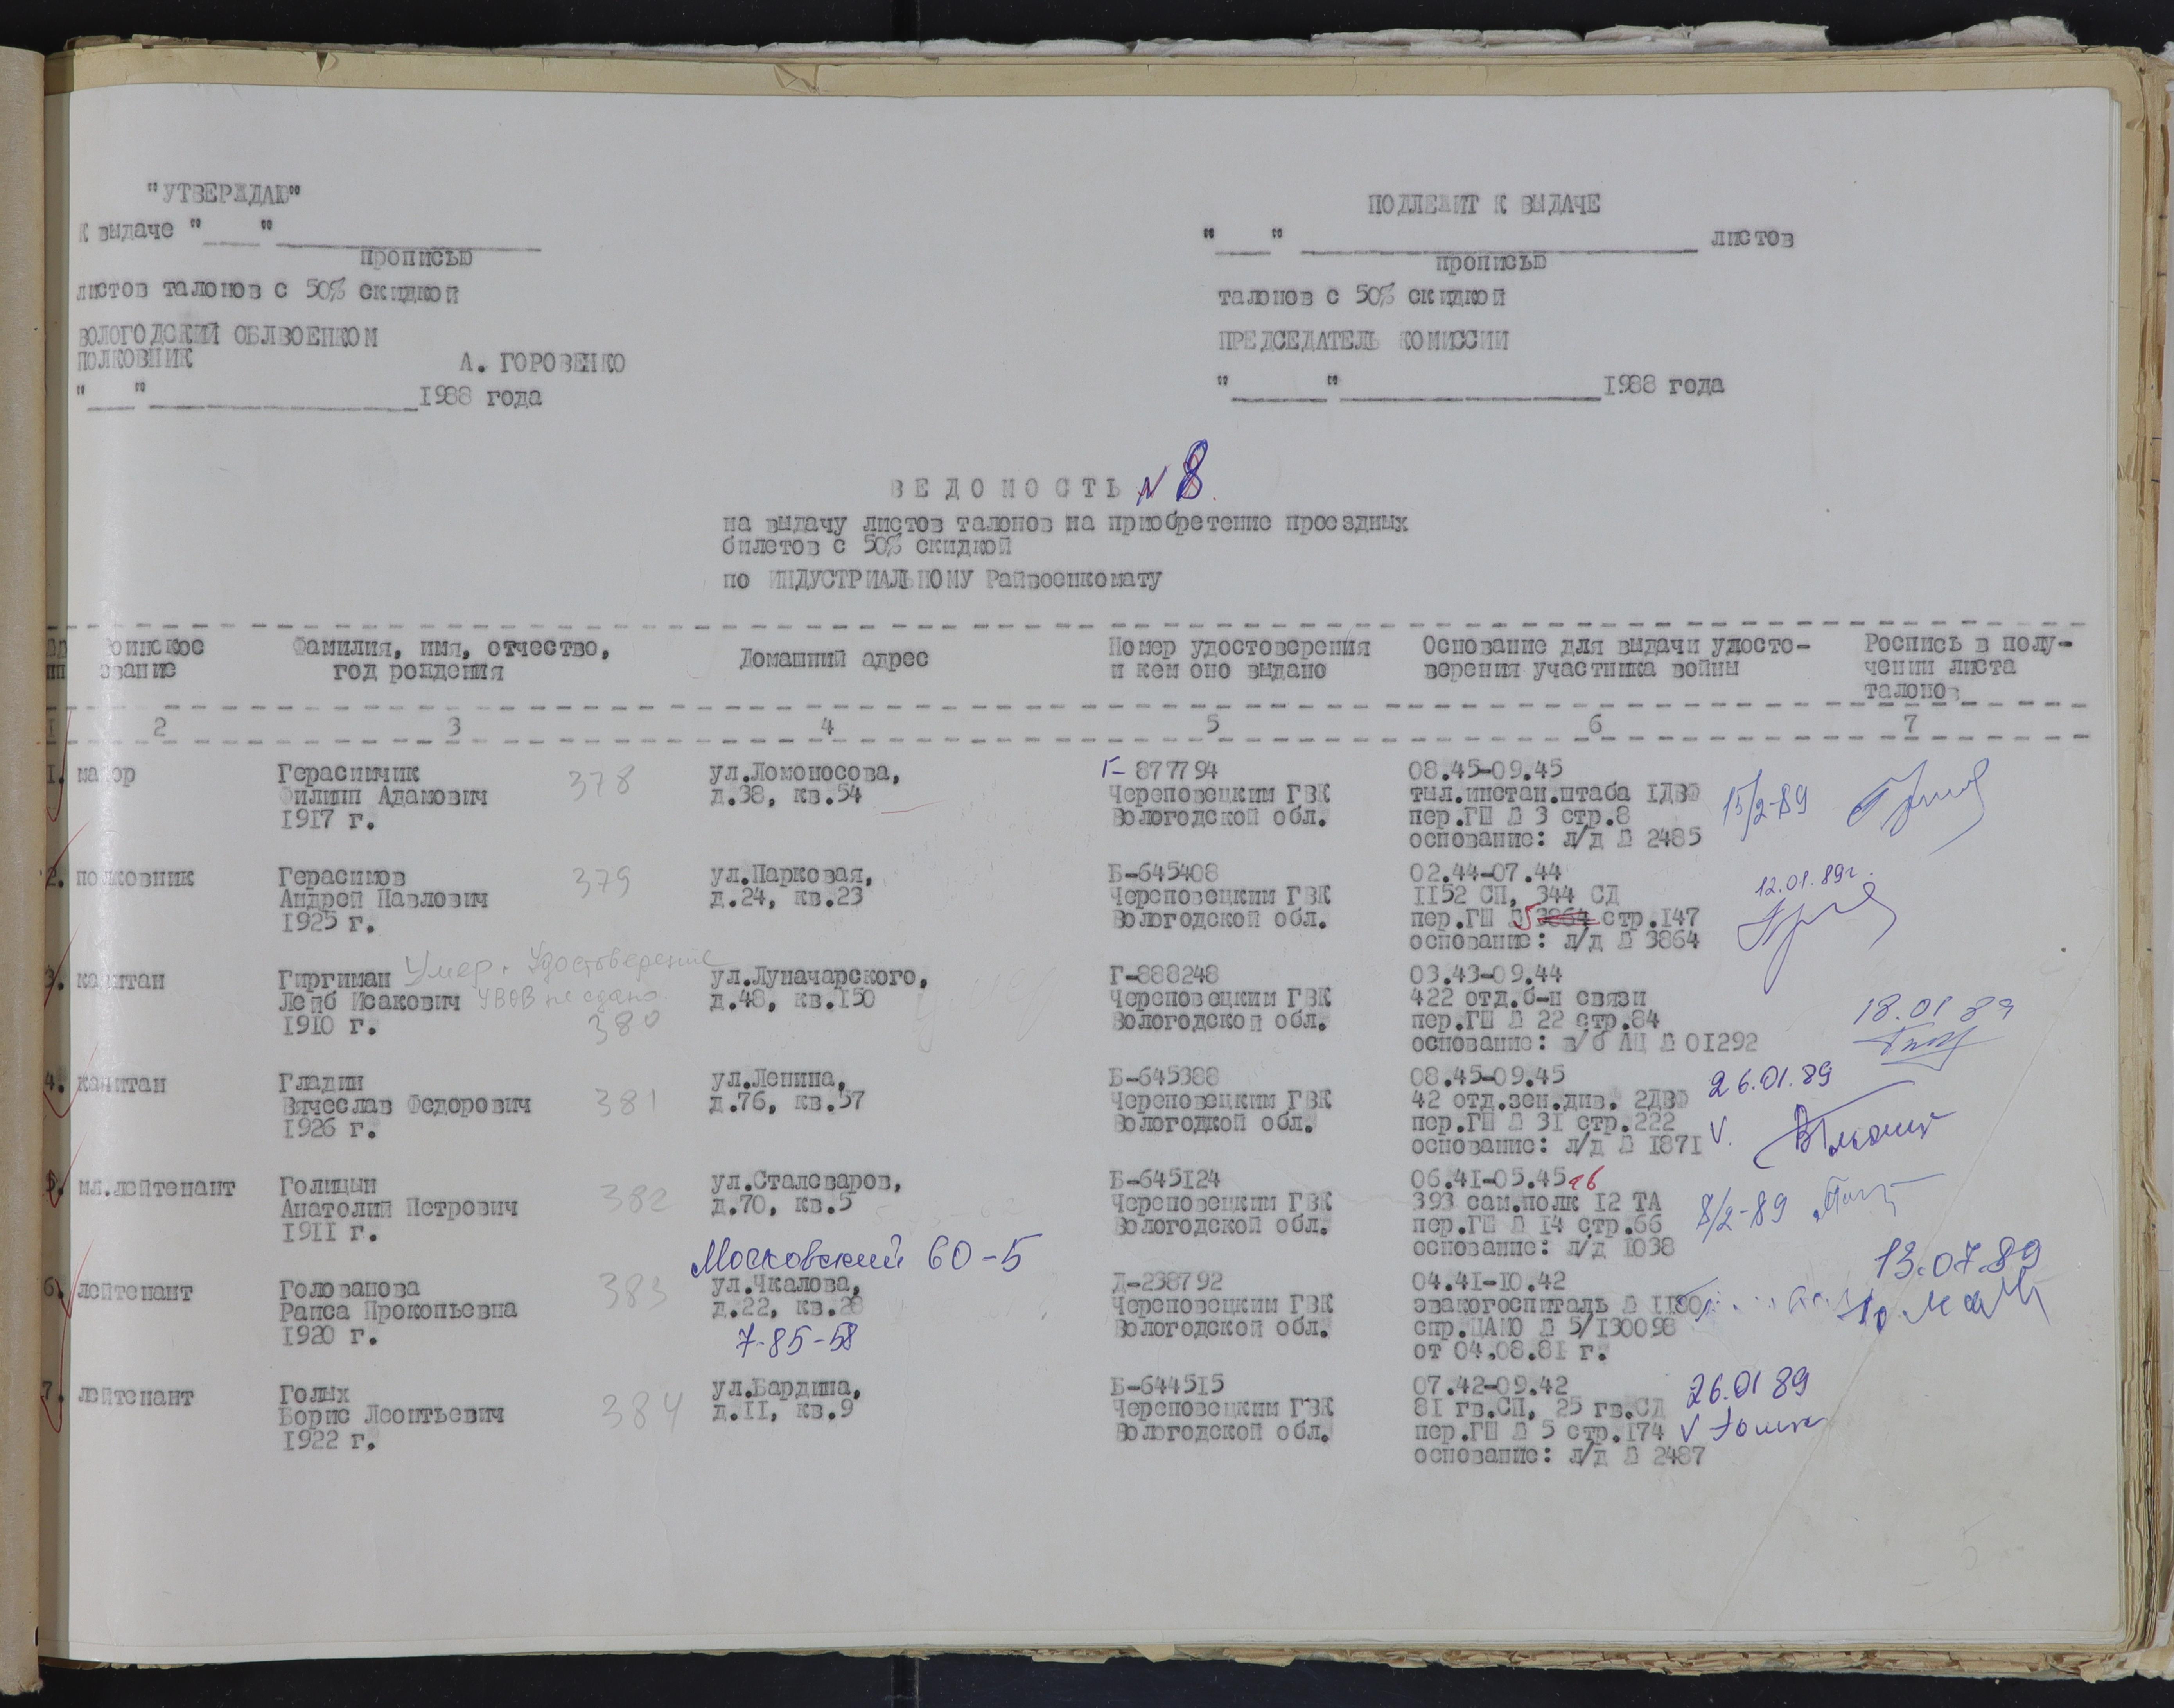 "УТВЕРЖДАЮ"
К выдаче "____" ____________________
прописью
листов талонов с 50% скидкой
ВОЛОГОДСКИЙ ОБЛВОЕНКОМ
ПОЛКОВНИК А. ГОРОВЕНКО
"____"____________________1988 года
ПОДЛЕЖИТ К ВЫДАЧЕ
"____" ______________________________ листов
прописью
талонов с 50% скидкой
ПРЕДСЕДАТЕЛЬ КОМИССИИ
"_______"____________________1988 года
ВЕДОМОСТЬ N 8.
на выдачу листов талонов на приобретение проездных
билетов с 50% скидкой
по ИНДУСТРИАЛЬНОМУ Райвоенкомату
Воинское звание
Фамилия, имя, отчество,
год рождения
Домашний адрес
Номер удостоверения
и кем оно выдано
Основание для выдачи удосто-
верения участника войны
Роспись в полу-
чении листа
талонов
1 2 3 4 5 6 7
1. майор Герасимчик 378 ул.Ломоносова, Г-877794 08.45-09.45
Филипп Адамович д.38, кв.54 Череповецким ГВК тыл.инстан.штаба 1ДВФ 15/2-89
1917 г. Вологодской обл. пер.ГШ № 3 стр.8
основание: л/д № 2485
2. полковник Герасимов 379 ул.Парковая, Б-645408 02.44-07.44 12.01.89г.
Андрей Павлович д.24, кв.23 Череповецким ГВК 1152 СП, 344 СД
1925 г. Вологодской обл. пер.ГШ № 5 3864 стр.147
основание: л/д № 3864
Умер. Удостоверение
3. капитан Гиргиман ул.Луначарского, Г-888248 03.43-09.44
Лейб Исакович УВОВ не сдано. д.48, кв.150 Череповецким ГВК 422 отд.б-н связи
1910 г. 380 Вологодской обл. пер.ГШ № 22 стр.84 18.01 89
основание: в/б ЛЦ № 01292
4. капитан Гладин 381 ул.Ленина, Б-645388 08.45-09.45 26.01.89
Вячеслав Федорович д.76, кв.57 Череповецким ГВК 42 отд.зен.див. 2ДВФ
1926 г. Вологодкой обл. пер.ГШ № 31 стр.222 V.
основание: л/д № 1871
5. мл.лейтенант Голицын 382 ул.Сталеваров, Б-645124 06.41-05.45
Анатолий Петрович д.70, кв.5 Череповецким ГВК 393 сам.полк 12 ТА 8/2-89
1911 г. Вологодской обл. пер.ГШ № 14 стр.66
основание: л/д 1038
Московский 60-5 13.07.89
6. лейтенант Голованова 383 ул.Чкалова, Д-238792 04.41-10.42
Раиса Прокопьевна д.22, кв.28 Череповецким ГВК эвакогоспиталь № 1180
1920 г. 7-85-58 Вологодской обл. спр.ЦАМО № 5/130098
от 04.08.81 г.
7. лейтенант Голых 384 ул.Бардина, Б-644515 07.42-09.42 26.01 89
Борис Леонтьевич д.11, кв.9 Череповецким ГВК 81 гв.СП, 25 гв.СД
1922 г. Вологодской обл. пер.ГШ № 5 стр.174 V
основание: л/д № 2487